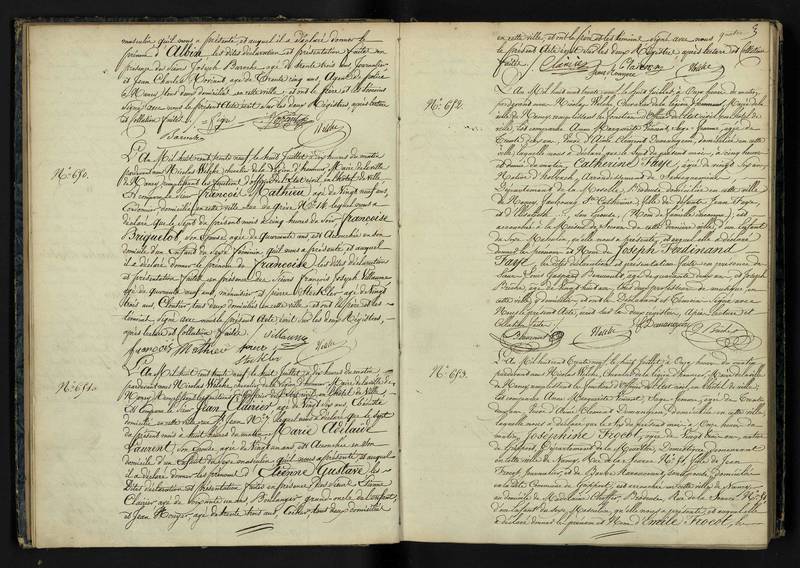 masculin qu'il nous a présenté et auquel il a déclaré donner le
prénom d'Albin les dites déclaration et présentation faites en
présence des Sieurs Joseph Barroche, agé de trente trois ans Journalier,
et Jean Charles Morizot agé de Trente cinq ans, Agent de police
à Nancy, tous deux domiciliés en cette ville, et ont le père et les témoins
signé avec nous le présent Acte écrit sur les deux Registres après lecture
et collation faites.
Welche
N.° 650.
L'An Mil huit cent trente neuf, le huit Juillet à dix heures du matin
pardevant nous Nicolas Welche, chevalier de la Légion d'honneur, Maire de la ville
de Nancy remplissant les fonctions d'officier de l'Etat civil, en l'hôtel de Ville
Est comparu le Sieur François Mathieu agé de Vingt neuf ans,
Cordonnier domicilié en cette ville rue de Grève N.° 14 lequel nous a
déclaré que le Sept du présent mois à cinq heures du Soir Françoise
Briquelot, son épouse, agée de quarante ans est Accouchée en son
domicile d'un Enfant du Sexe féminin, qu'il nous a présenté et auquel
il a déclaré donner le prénom de Françoise, les dites déclaration
et présentation faites en présence des Sieurs François Joseph Villaume
agé de quarante neuf ans, menuisier et pierre Steckler agé de Vingt
trois ans, Cloutier, tous deux domiciliés en cette ville et ont le père et les
témoins, signé avec nous le présent Acte écrit sur les deux Registres,
après lecture et collation faites. Villaume
françois Mathieu pierre
Steckler Welche
N.° 651.
L'An Mil huit cent trente neuf, le huit Juillet à dix heures du matin
pardevant nous Nicolas Welche, chevalier de la Légion d'honneur Maire de la ville de
Nancy remplissant les fonctions d'officier de l'Etat civil, en l'hôtel de Ville,
Est comparu le Sieur Jean Clairier agé de Vingt six ans, Ebéniste
domicilié en cette ville rue St. Jean N.° 7 lequel nous a déclaré que le Sept
du présent mois à huit heures du matin, Marie Adélaïde
Laurent, son épouse, agée de Vingt un ans, est Accouchée en son
domicile d'un Enfant du Sexe masculin qu'il nous a présenté et auquel
il a déclaré donner les prénoms d'Etienne Gustave les
dites déclaration et présentation faites en présence des Sieurs Etienne
Clairier, agé de soixante un ans, Boulanger grand oncle de l'enfant,
et Jean agé de trente trois ans, tous deux domiciliés
3
en cette ville, et ont le père et les témoins signé avec nous
le présent Acte écrit sur les deux Registres après lecture et collation
faites. Clairier
Welche
N.° 652.
L'An Mil huit cent trente neuf, le huit Juillet, à Onze heures du matin,
pardevant nous Nicolas Welche, Chevalier de la Légion d'honneur, Maire de la ville
de Nancy remplissant les fonctions d'Officier de l'Etat civil, en l'hôtel de
ville, est comparue Anne Marguerite Sage femme, agée de
Trente deux ans, Veuve d'Aimé Clément Demangeon, domiciliée en cette
ville, laquelle nous a déclaré que le Sept du présent mois, à cinq heures
et demie du matin, Catherine Faye, agée de vingt six ans,
Native d'Holbach, arrondissement de Sarreguemines
Département de la Moselle, Brodeuse, domiciliée en cette ville
de Nancy, faubourg Ste. Catherine, fille de défunts Jean Faye,
et Elisabeth, son épouse, (Nom de famille inconnu), est
accouchée à la Maison de Secours de cette dernière ville, d'un Enfant
du Sexe Masculin, qu'elle nous a présenté, et auquel elle a déclaré
donner les prénoms et Nom de Joseph Ferdinand
Faye, les dites déclaration et présentation faites en présence des
Sieurs Louis Gaspard agé de quarante deux ans, et Joseph
agé de Vingt huit ans, tous deux professeurs de musique, en
cette ville, domiciliés, et ont la Déclarante et les témoins signé avec
Nous le présent Acte, écrit sur les deux registres, Après Lecture et
Collation faites. Demangeon
Welche
N.° 653.
L'An Mil huit cent Trente neuf, le huit Juillet, à Onze heures du matin,
pardevant nous Nicolas Welche, Chevalier de la Légion d'honneur, Maire de la ville
de Nancy remplissant les fonctions d'Officier de l'Etat civil, en l'hôtel de ville,
Est comparue Anne Marguerite Sage femme, agée de Trente
deux ans, Veuve d'Aimé Clément Demangeon, Domiciliée en cette ville,
laquelle nous a déclaré que le Sept du présent mois à Onze heures du
matin, Joséphine Frocot, agée de Vingt ans, native
Département de la Meurthe, Domestique, demeurant
en cette ville de Nancy Rue de la Source N.° 51, fille de Jean
Frocot, Journalier, et de Barbe domiciliés
en la dite Commune est accouchée en cette ville de Nancy,
au domicile de Madeleine Brodeuse, Rue de la Source N.° 51
d'un Enfant du Sexe Masculin, qu'elle nous a présenté, et auquel elle
a déclaré donner les prénom et Nom d'Emile Frocot, les